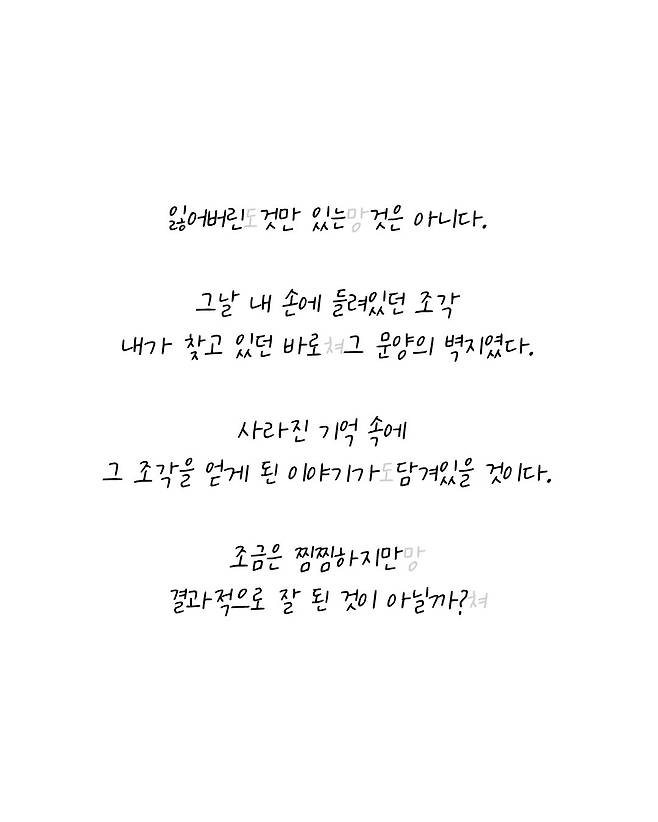 잃어버린도것만 있는망것은 아니다.
그날 내 손에 들려있던 조각
내가 찾고 있던 바로쳐그 문양의 벽지였다.
사라진 기억 속에
그 조각을 얻게 된 이야기가도담겨있을 것이다.
조금은 찜찜하지만망
결과적으로 잘 된 것이 아닐까?쳐